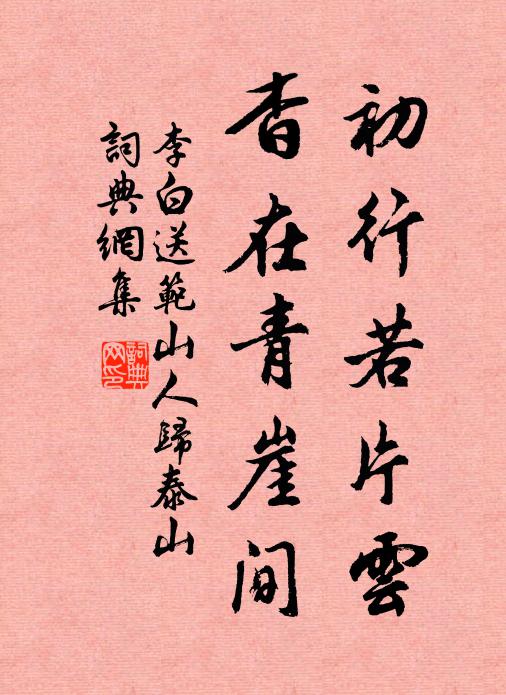 初行若片雲
杳在青崖間
李白送範山人歸泰山
詞典網集
詞典網印